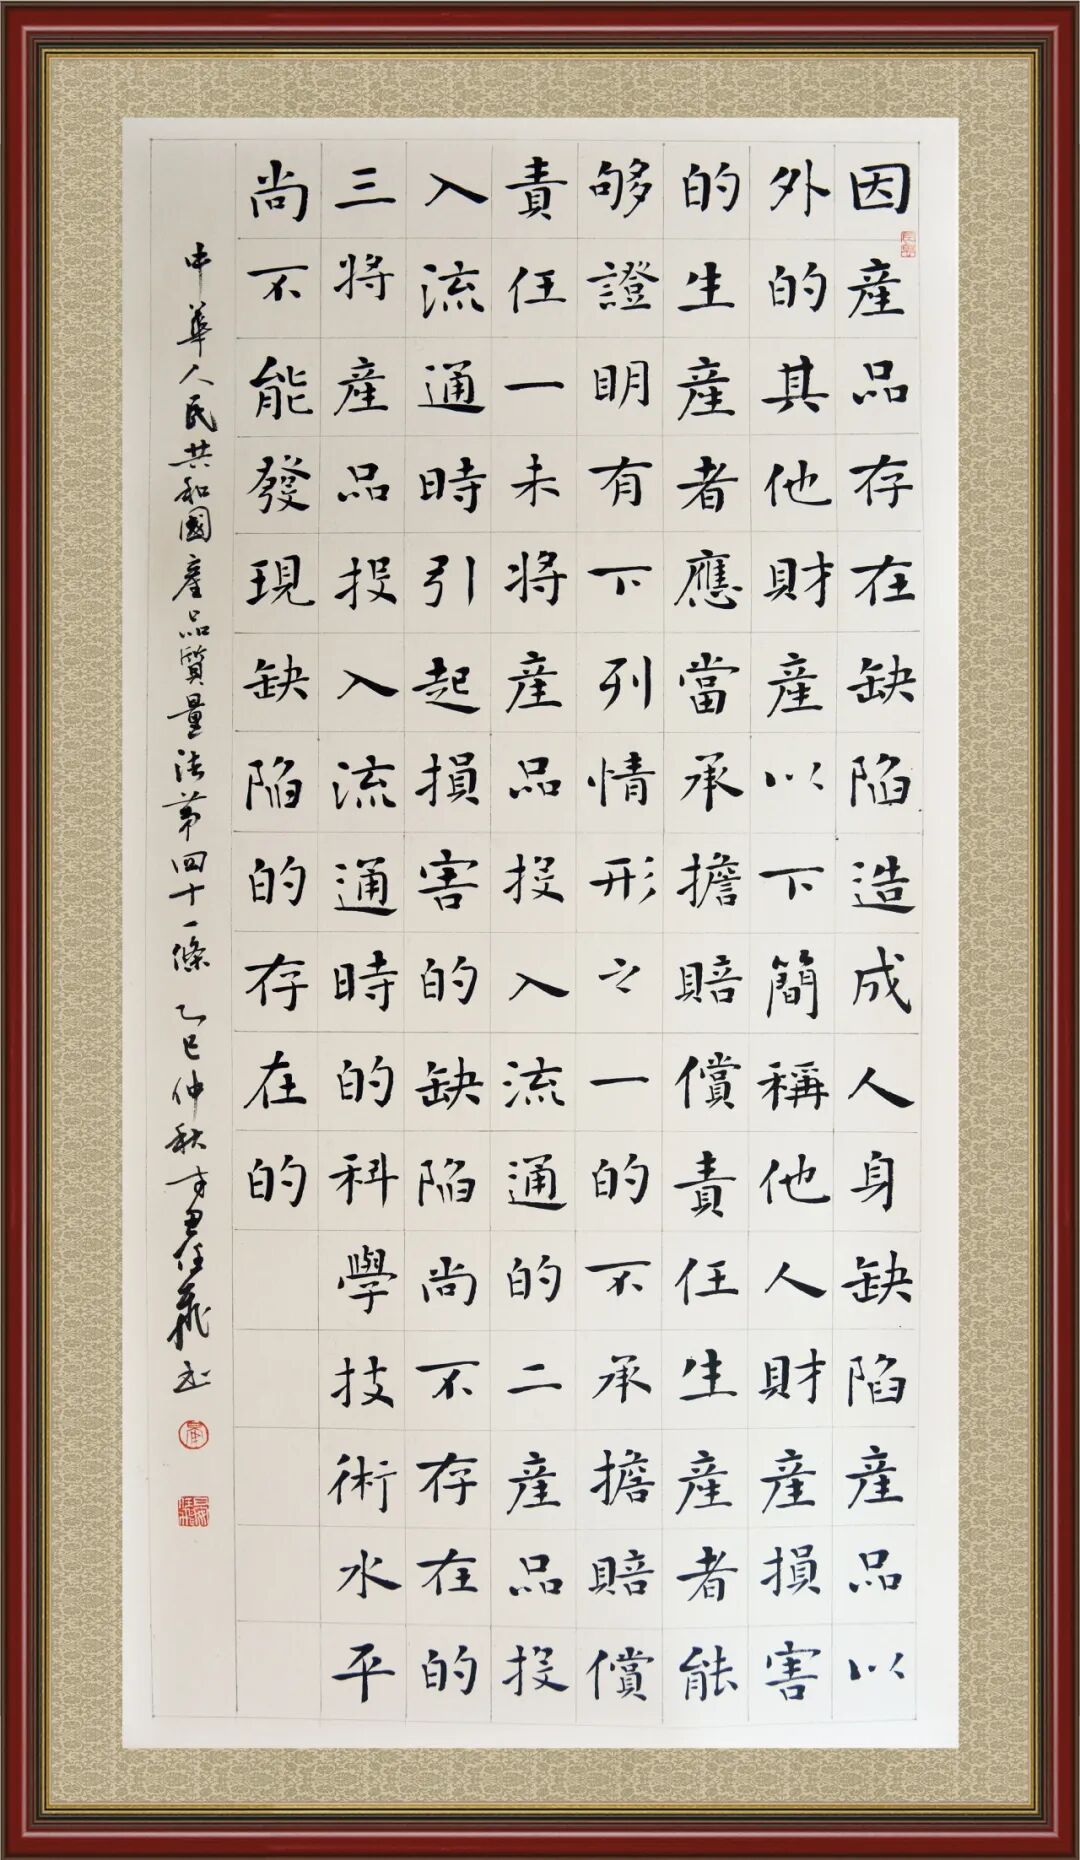 因產品存在缺陷造成人身缺陷產品以
外的其他財產以下簡稱他人財產損害
的生產者應當承擔賠償責任生產者能
够證明有下列情形之一的不承擔賠償
責任一未將產品投入流通的二產品投
入流通時引起損害的缺陷尚不存在的
三將產品投入流通時的科學技術水平
尚不能發現缺陷的存在的
中華人民共和國產品質量法第四十一條 乙巳仲秋